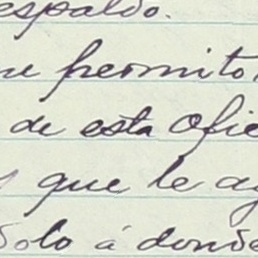 espaldo.
me permito
de esta Ofic
que le ag
dolo á donde